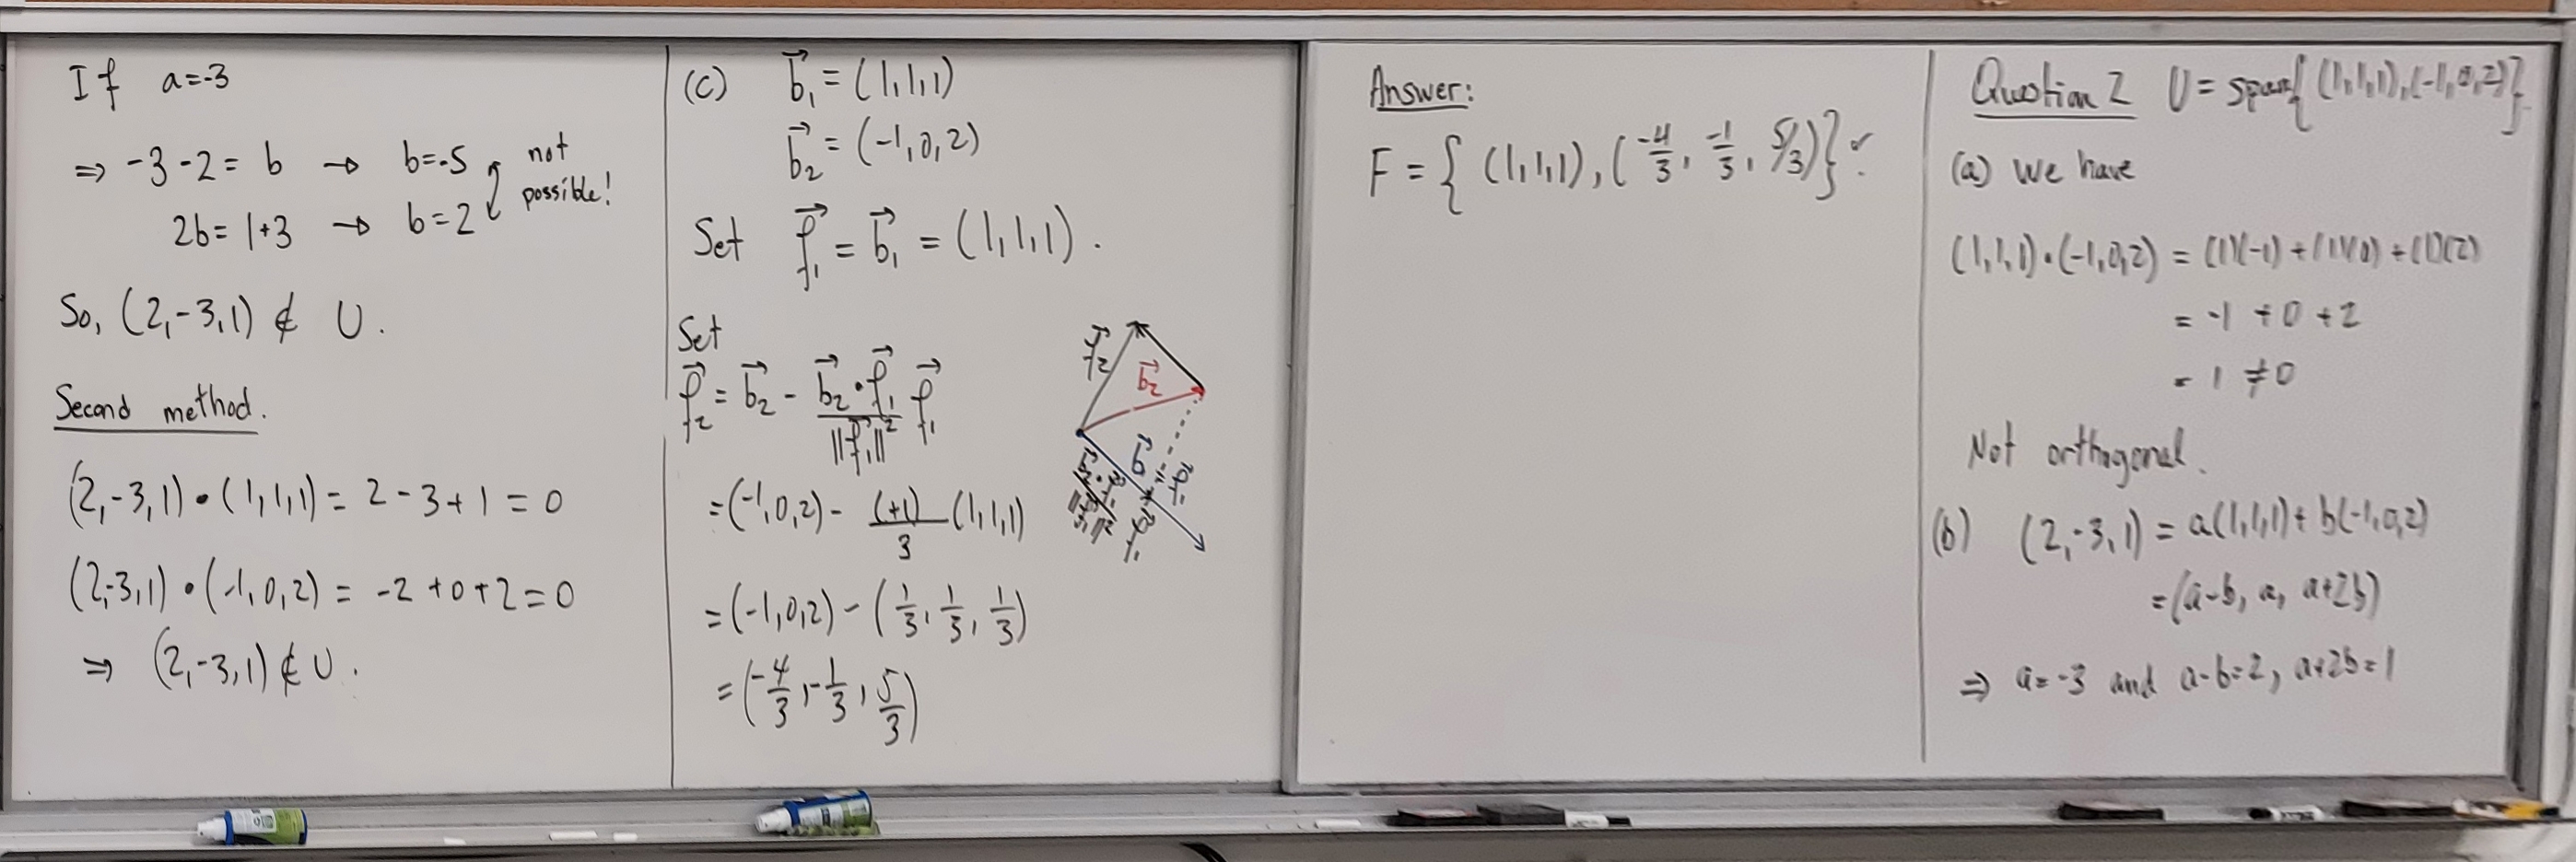 If a=-3
⇒ -3-2 = b → b=-5
not possible!
2b = 1+3 → b=2
So, (2,-3,1) ∉ U.
Second method.
(2,-3,1)•(1,1,1) = 2-3+1 = 0
(2,-3,1)•(-1,0,2) = -2+0+2=0
⇒ (2,-3,1) ∉ U.
(c) b⃗₁ = (1,1,1)
b⃗₂ = (-1,0,2)
Set f⃗₁ = b⃗₁ = (1,1,1).
Set
f⃗₂ = b⃗₂ - (b⃗₂•f⃗₁)/||f⃗₁||² f⃗₁
=(-1,0,2) - (+1)/3 (1,1,1)
=(-1,0,2) - (1/3, 1/3, 1/3)
=(-4/3, -1/3, 5/3)
f⃗₂
b⃗₂
b⃗₁ = f⃗₁
Answer:
F = { (1,1,1), (-4/3, -1/3, 5/3)}
Question 2 U = span{(1,1,1),(-1,0,2)}.
(a) We have
(1,1,1)•(-1,0,2) = (1)(-1)+(1)(0)+(1)(2)
= -1 +0 +2
= 1 ≠0
Not orthogonal.
(b) (2,-3,1) = a(1,1,1)+b(-1,0,2)
=(a-b, a, a+2b)
⇒ a=-3 and a-b=2, a+2b=1